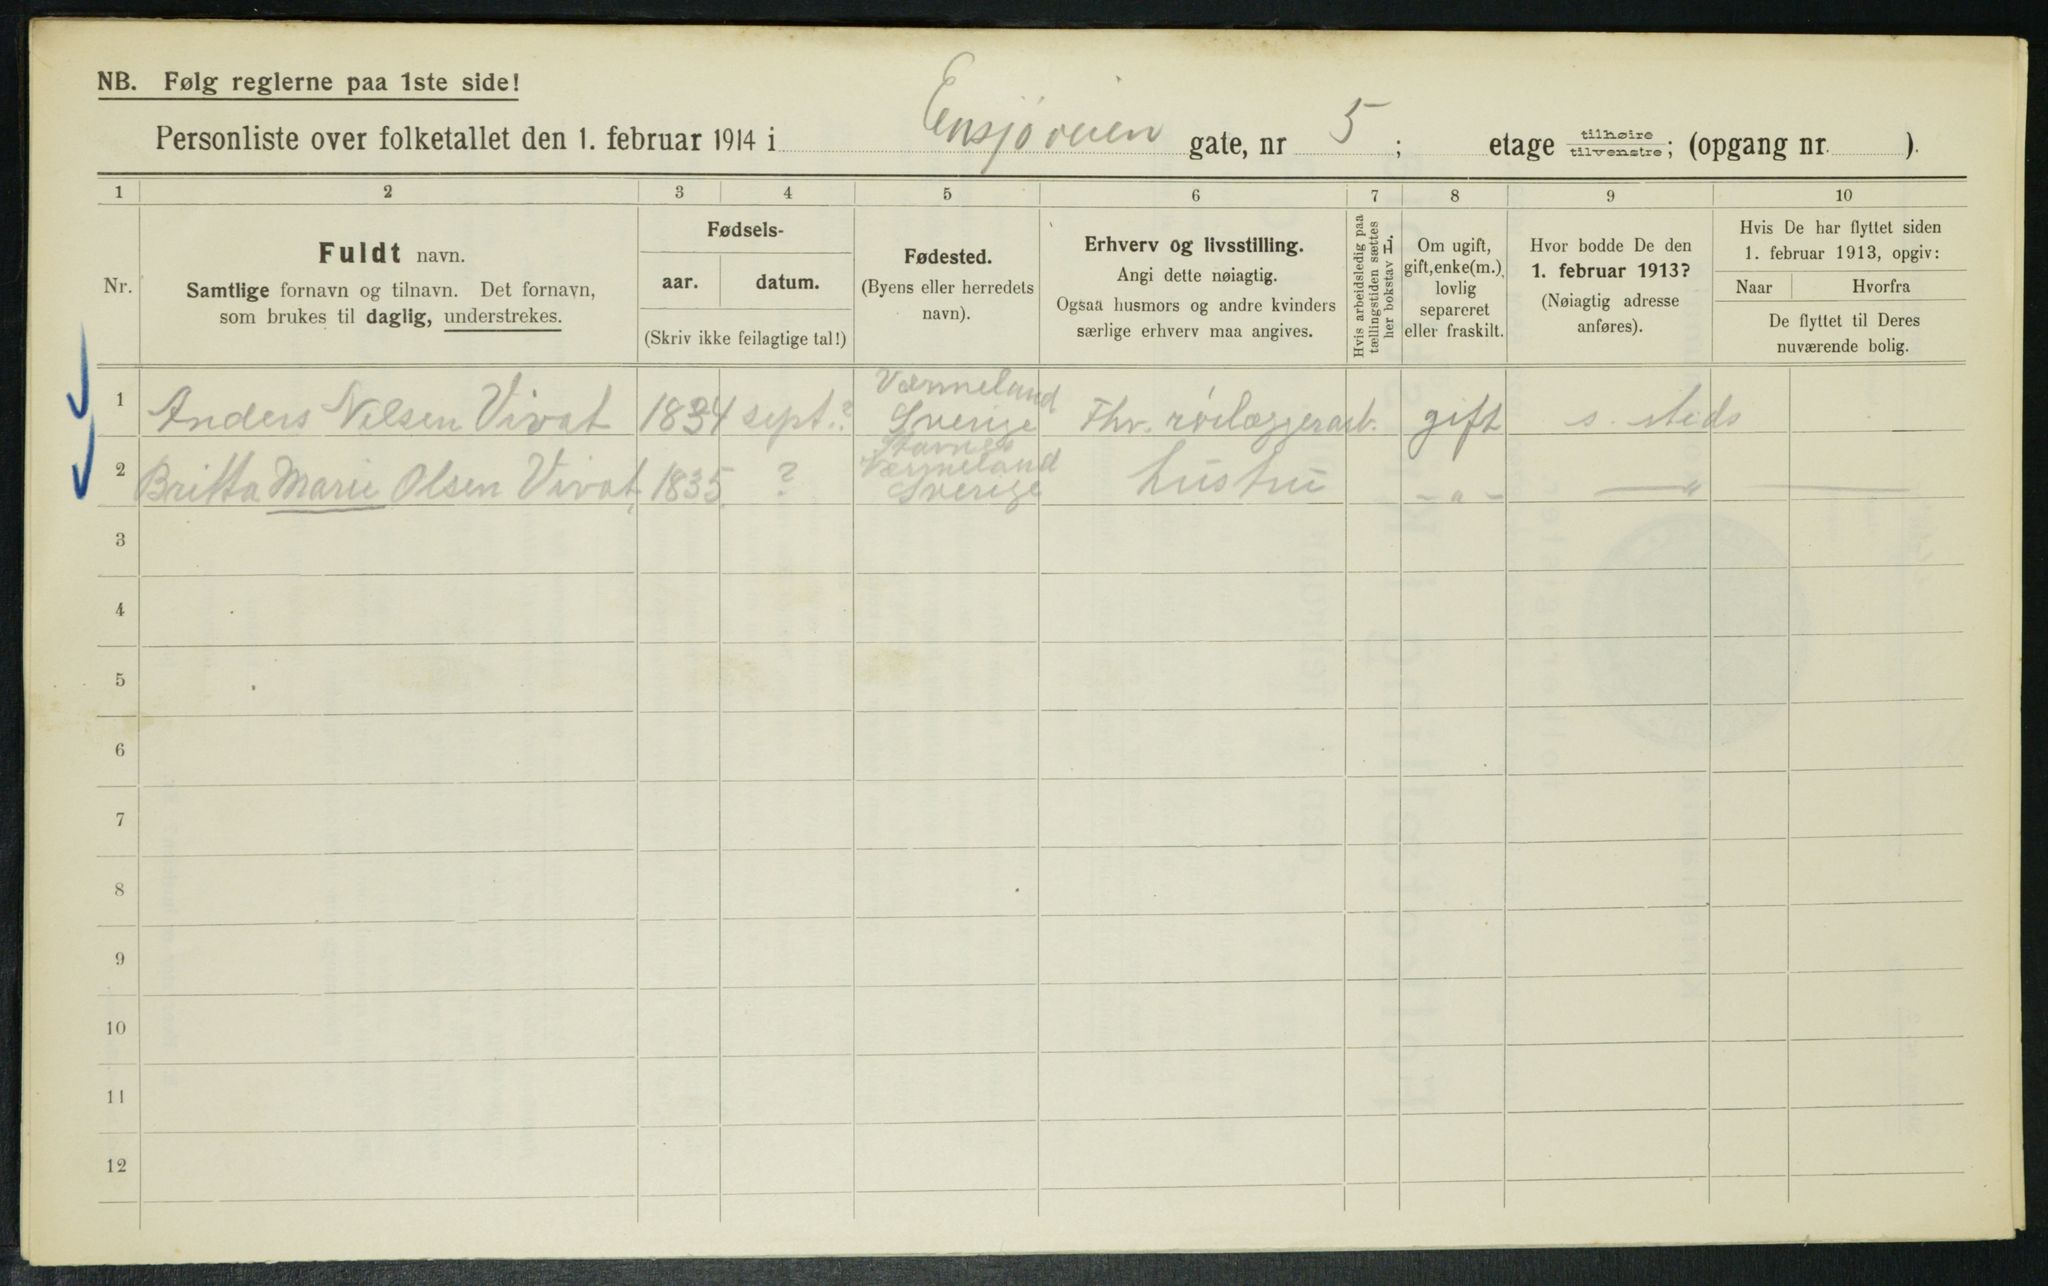 NB. Følg reglerne paa 1ste side!
Personliste over folketallet den 1. februar 1914 i Ensjøveien gate, nr 5 ; etage tilhøire tilvenstre; (opgang nr. ).
1 2 3 4 5 6 7 8 9 10
Nr.
Fuldt navn.
Samtlige fornavn og tilnavn. Det fornavn,
som brukes til daglig, understrekes.
Fødsels-
aar. datum.
(Skriv ikke feilagtige tal!)
Fødested.
(Byens eller herredets
navn).
Erhverv og livsstilling.
Angi dette nøiagtig.
Ogsaa husmors og andre kvinders
særlige erhverv maa angives.
Hvis arbeidsledig paa
tællingstiden sættes
her bokstav L.
Om ugift,
gift, enke(m.),
lovlig
separeret
eller fraskilt.
Hvor bodde De den
1. februar 1913?
(Nøiagtig adresse
anføres).
Hvis De har flyttet siden
1. februar 1913, opgiv:
Naar Hvorfra
De flyttet til Deres
nuværende bolig.
1 Anders Nilsen Vivat 1834 sept.? Værmeland Sverige Fhv. rørlæggerarb. gift s. steds
2 Britta Marie Olsen Vivat, 1835 ? Stavnes Værmeland Sverige hustru - " - — " —
3
4
5
6
7
8
9
10
11
12